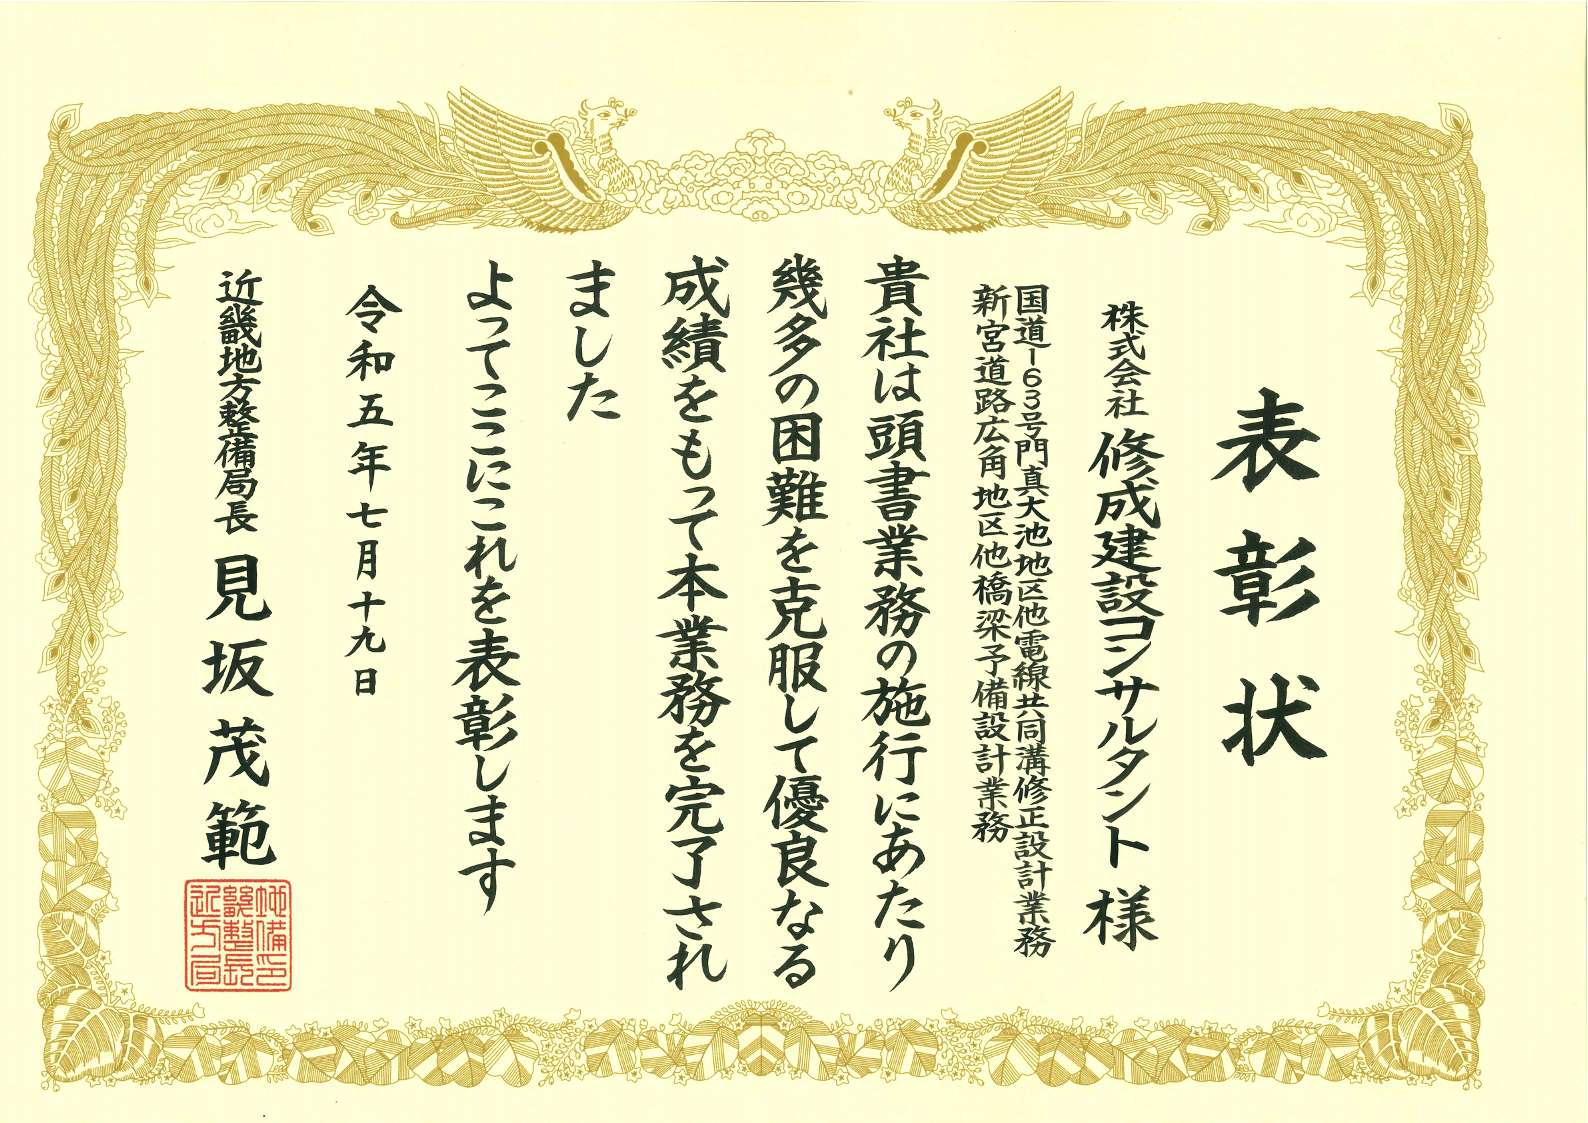 表彰状
株式会社 修成建設コンサルタント 様
国道163号門真大池地区他電線共同溝修正設計業務
新宮道路広角地区他橋梁予備設計業務
貴社は頭書業務の施行にあたり
幾多の困難を克服して優良なる
成績をもって本業務を完了され
ました
よってここにこれを表彰します
令和五年七月十九日
近畿地方整備局長 見坂茂範
近畿地方整備局長印